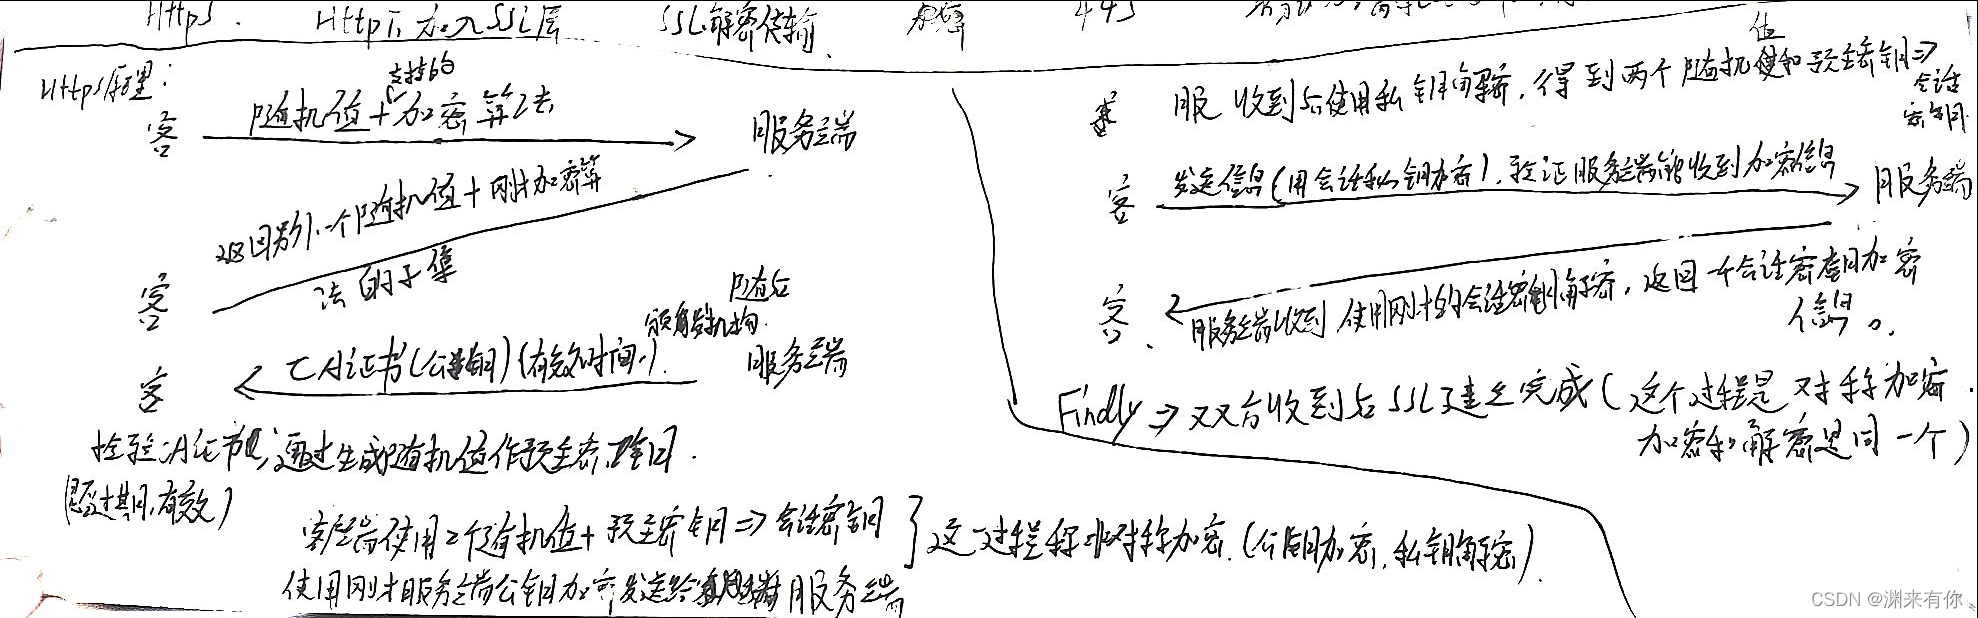 Https. Http下加入SSL层 SSL加密传输 443
Https原理:
支持的
客 随机值+加密算法 服务端
返回另外一个随机值+刚才加密算
法的子集
客
随后
颁发机构
客 CA证书(公钥)(有效时间) 服务端
检验CA证书,通过生成随机值作预主密钥.
(是否过期,有效)
客户端使用2个随机值+预主密钥⇒会话密钥
使用刚才服务端公钥加密发送给服务端
这一过程称非对称加密.(公钥加密,私钥解密).
值
服 收到后使用私钥解密,得到两个随机和预主密钥⇒
会话
密钥
客 发送信息(用会话私钥加密),验证服务端能收到加密信息 服务端
客 服务端收到使用刚才的会话密钥解密,返回一个会话密钥加密
信息。
Findly ⇒ 双方收到后SSL建立完成(这个过程是对称加密.
加密和解密是同一个)
CSDN @渊来有你